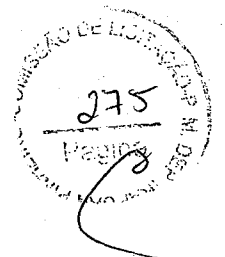 COMISSÃO DE LICITAÇÃO-P. M. DEP.
275
Página